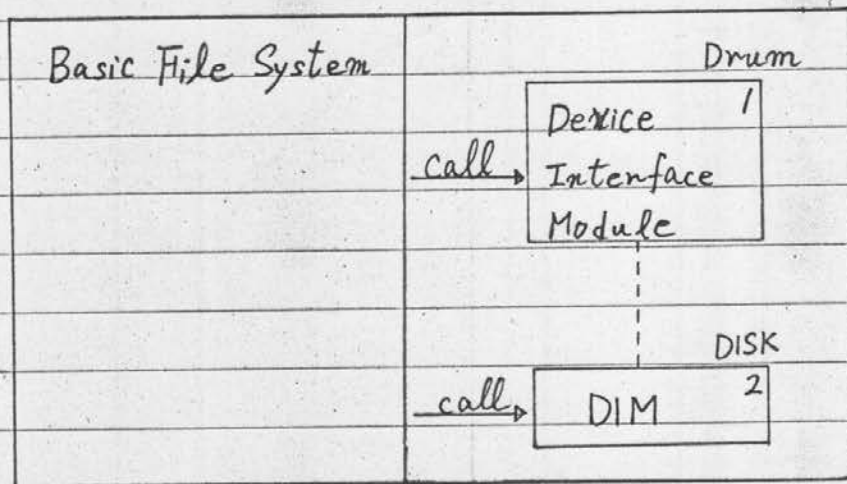 Basic File System
Drum
Device 1
call Interface
Module
DISK
call DIM 2